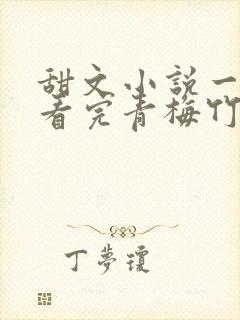 甜文小説一
看完青梅竹
丁夢瓊